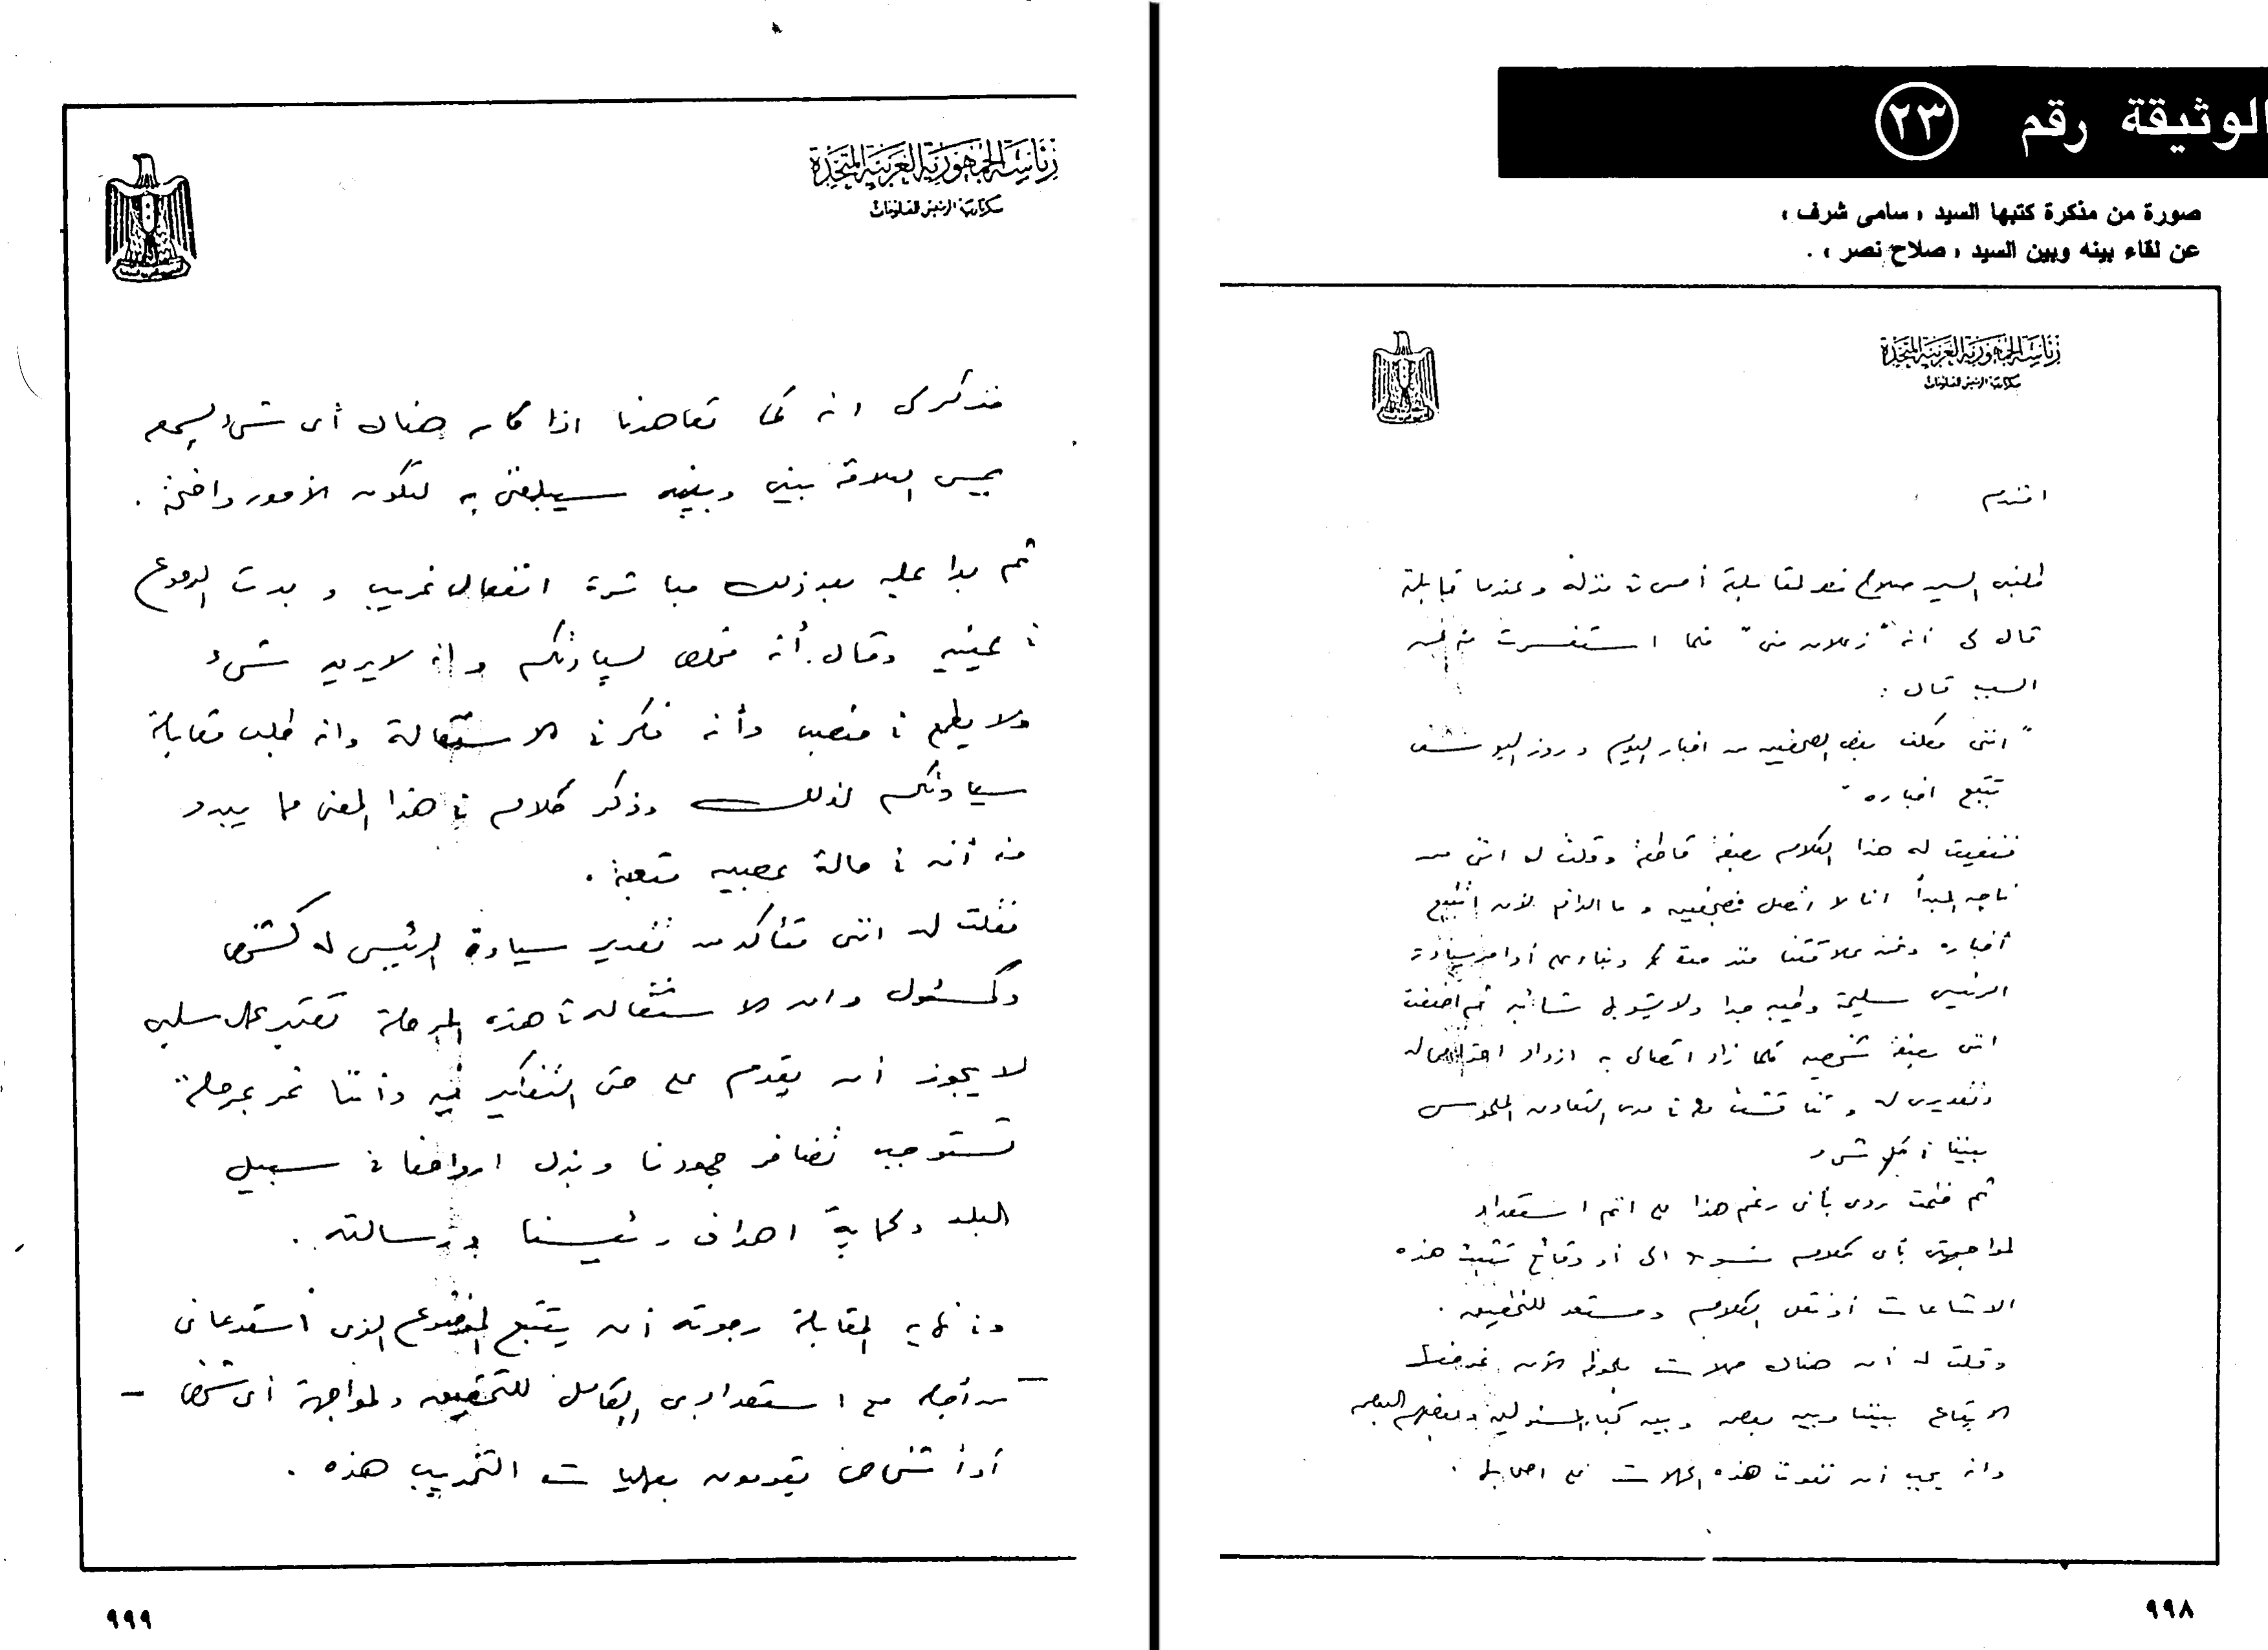 الوثيقة رقم ٢٣
صورة من مذكرة كتبها السيد «سامى شرف»
عن لقاء بينه وبين السيد «صلاح نصر» .
رئاسة الجمهورية العربية المتحدة
سكرتارية الرئيس للمعلومات
افندم
طلبنى السيد صلاح نصر لمقابلة أمس فى منزله وعندما قابلته
قال لى انه "زعلان منى" فلما استفسرت منه عن
السبب قال :
"اننى مكلف بعض الصحفيين من اخبار اليوم وروز اليوسف
تتبع اخباره"
فنفيت له هذا الكلام بصفة قاطعة وقلت له اننى من
ناحية المبدأ انا لا اتصل بصحفيين وما الداعى لأن اتتبع
أخباره ونحن علاقتنا منذ مدة وبناء على أوامر سيادة
الرئيس سليمة وطيبه جدا ولا يشوبها شائبه ثم اضفت
اننى بصفة شخصيه كلما زاد اتصالى به ازداد احترامى له
وتقديرى له وتناقشنا فى مدى التعاون الملموس
بيننا فى كل شىء
ثم ختمت ردى بأنى رغم هذا على اتم استعداد
لمواجهتى بأى كلام منسوب الى أو وقائع تثبت هذه
الاشاعات أو نقل الكلام ومستعد للتحقيق .
وقلت له أن هناك حملات ملحوظة الآن غرضها
الايقاع بيننا وبين بعض وبين كبار المسئولين وبعضهم البعض
وانه يجب ان نفوت هذه الحملات على اصحابها .
٩٩٨
رئاسة الجمهورية العربية المتحدة
سكرتارية الرئيس للمعلومات
فذكر لى انه كما تعاهدنا اذا كان هناك أى شىء يسمعه
يمس العلاقة بينى وبينه سيبلغنى به لتكون الأمور واضحة .
ثم بدا عليه بعد ذلك مباشرة انفعال غريب وبدت الدموع
فى عينيه وقال أنه مخلص لسيادتكم وانه لا يريد شىء
ولا يطمع فى منصب وأنه فكر فى الاستقالة وانه طلب مقابلة
سيادتكم لذلك وذكر كلام فى هذا المعنى مما يبدو
منه أنه فى حالة عصبيه متعبة .
فقلت له اننى متأكد من تقدير سيادة الرئيس له كشخص
وكمسئول وان الاستقالة فى هذه المرحلة تعتبر عمل سلبى
لا يجوز أن يقدم على حتى التفكير فيه وأننا نمر بمرحلة
تستوجب تضافر جهودنا وبذل ارواحنا فى سبيل
البلد وحماية اهداف رئيسنا ورسالته .
وفى نهاية المقابلة رجوته أن يتتبع الموضوع الذى استدعانى
من أجله مع استعدادى الكامل للتحقيق ولمواجهة أى شخص -
أو أشخاص يقومون بعمليات التخريب هذه .
٩٩٩